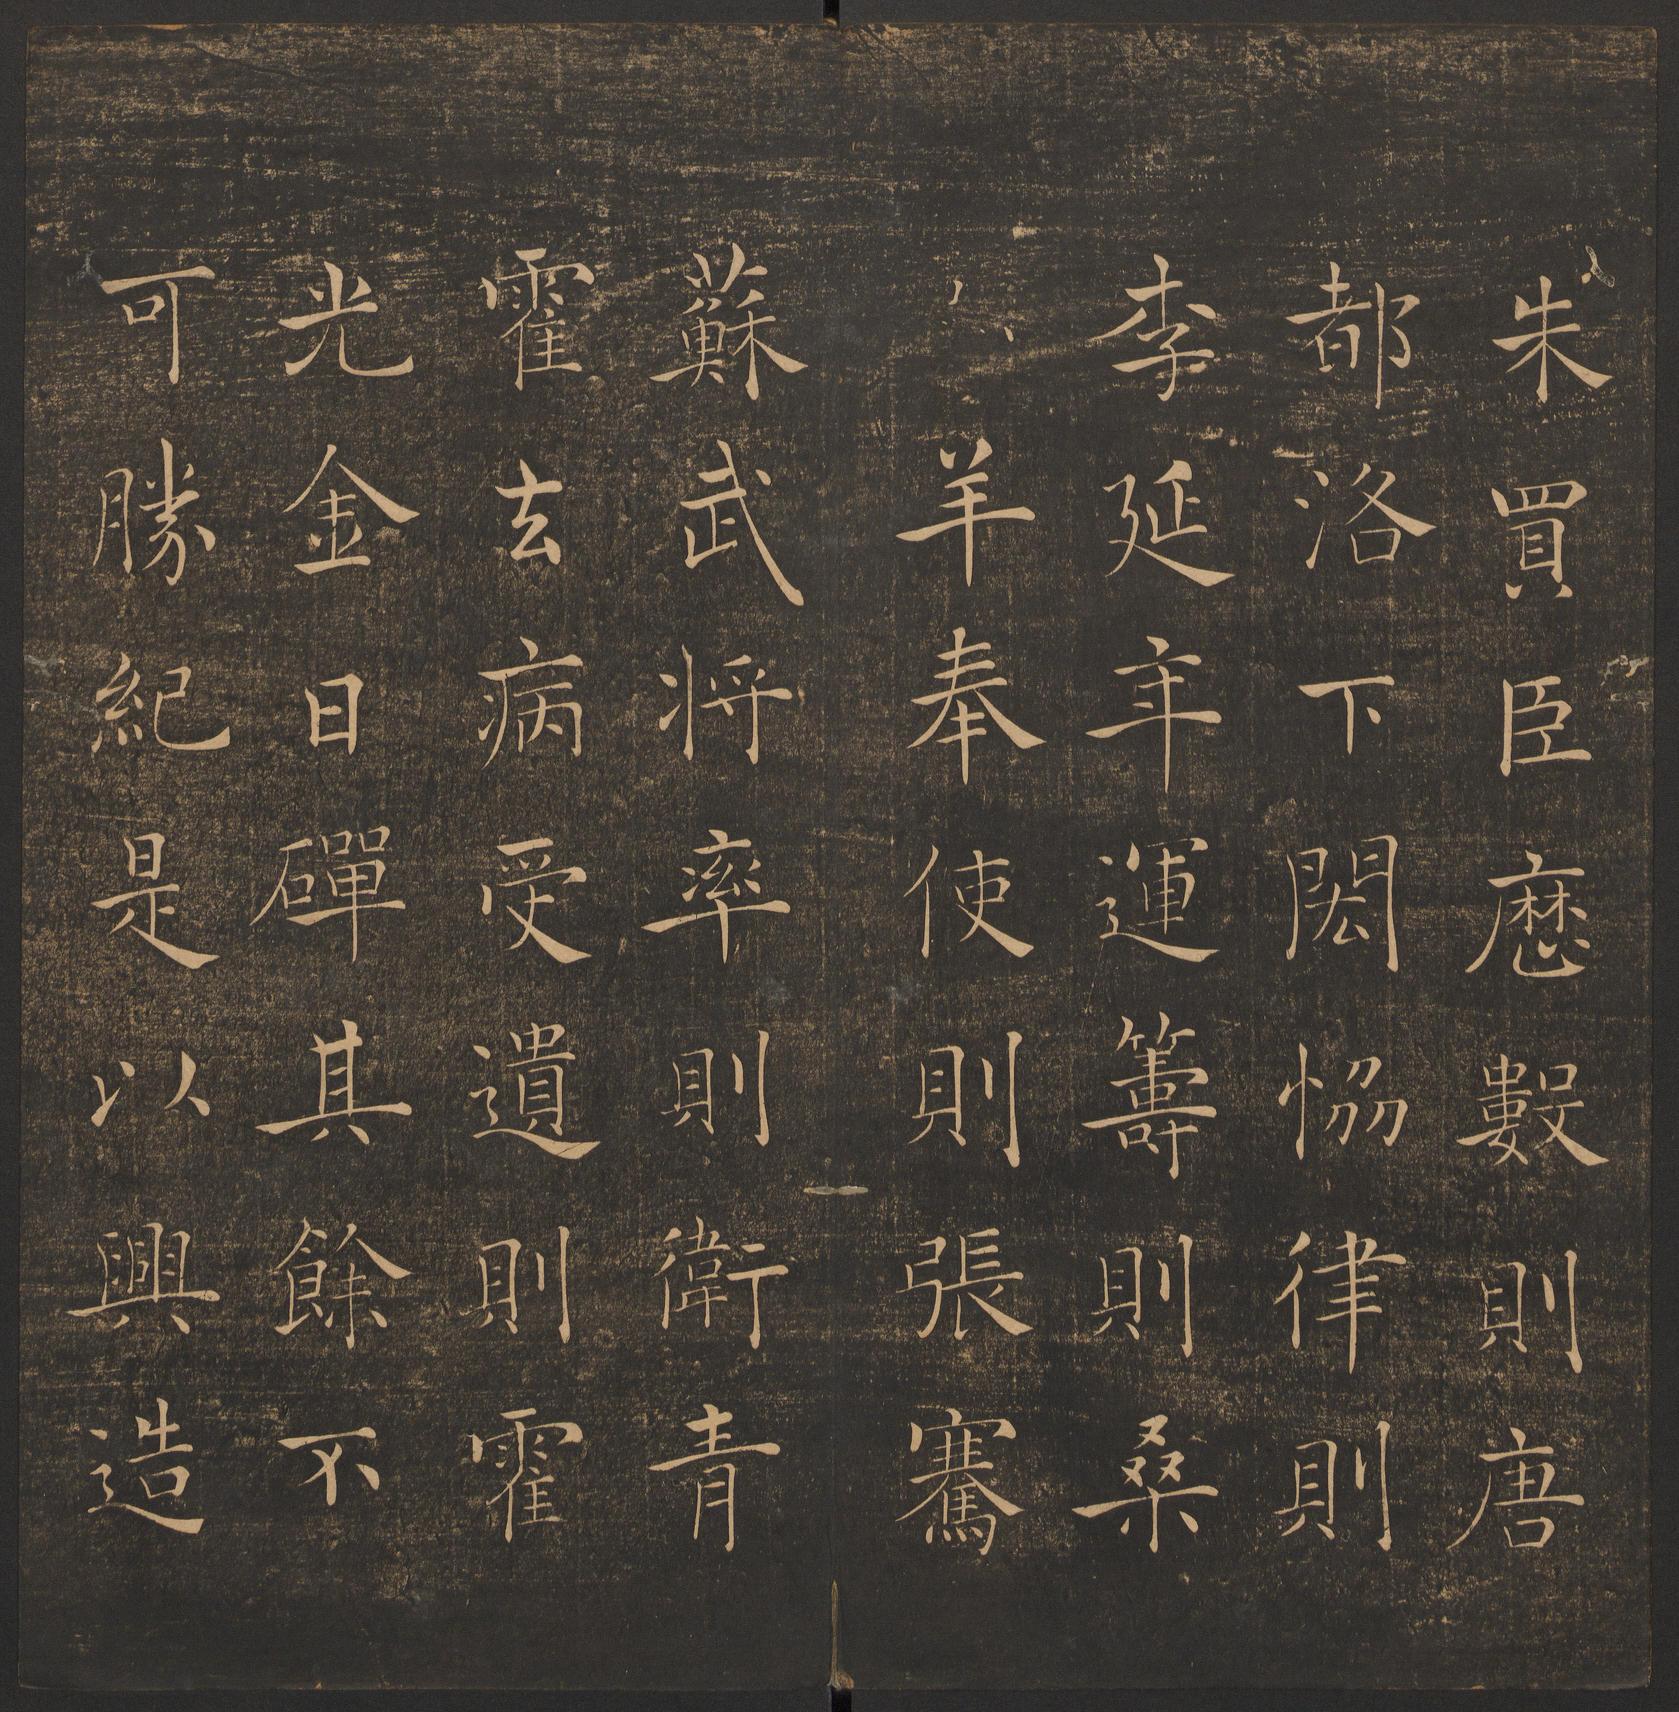 朱買臣厯數則唐
都洛下閎恊律則
李延年運籌則桑
羊奉使則張騫
蘇武将率則衛青
霍去病受遺則霍
光金日磾其餘不
可勝紀是以興造